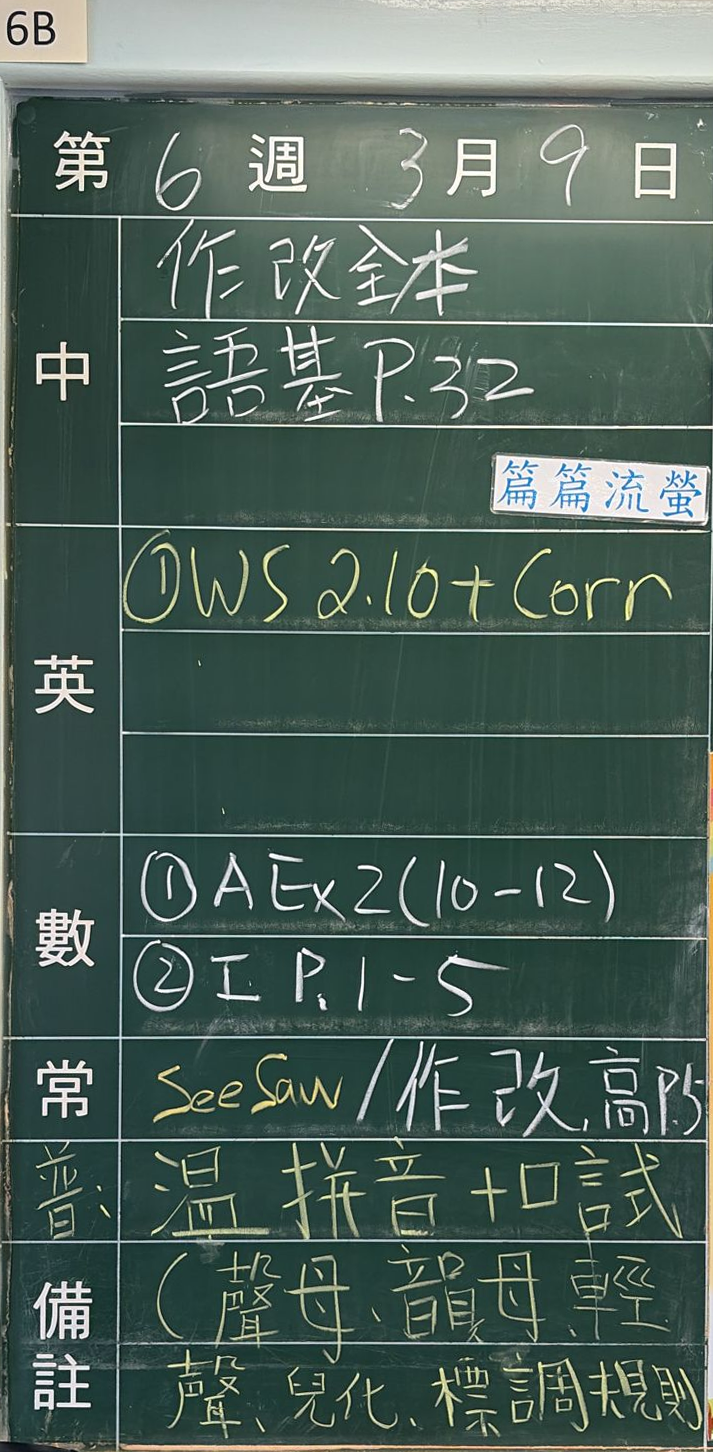 6B
第 6 週 3 月 9 日
中
作改全本
語基P.32
篇篇流螢
英
①WS 2.10+Corr
數
①A Ex2(10-12)
②I. P.1-5
常
SeeSaw/作改,高P.5
普:溫拼音+口試
備註
(聲母、韻母、輕
聲、兒化、標調規則